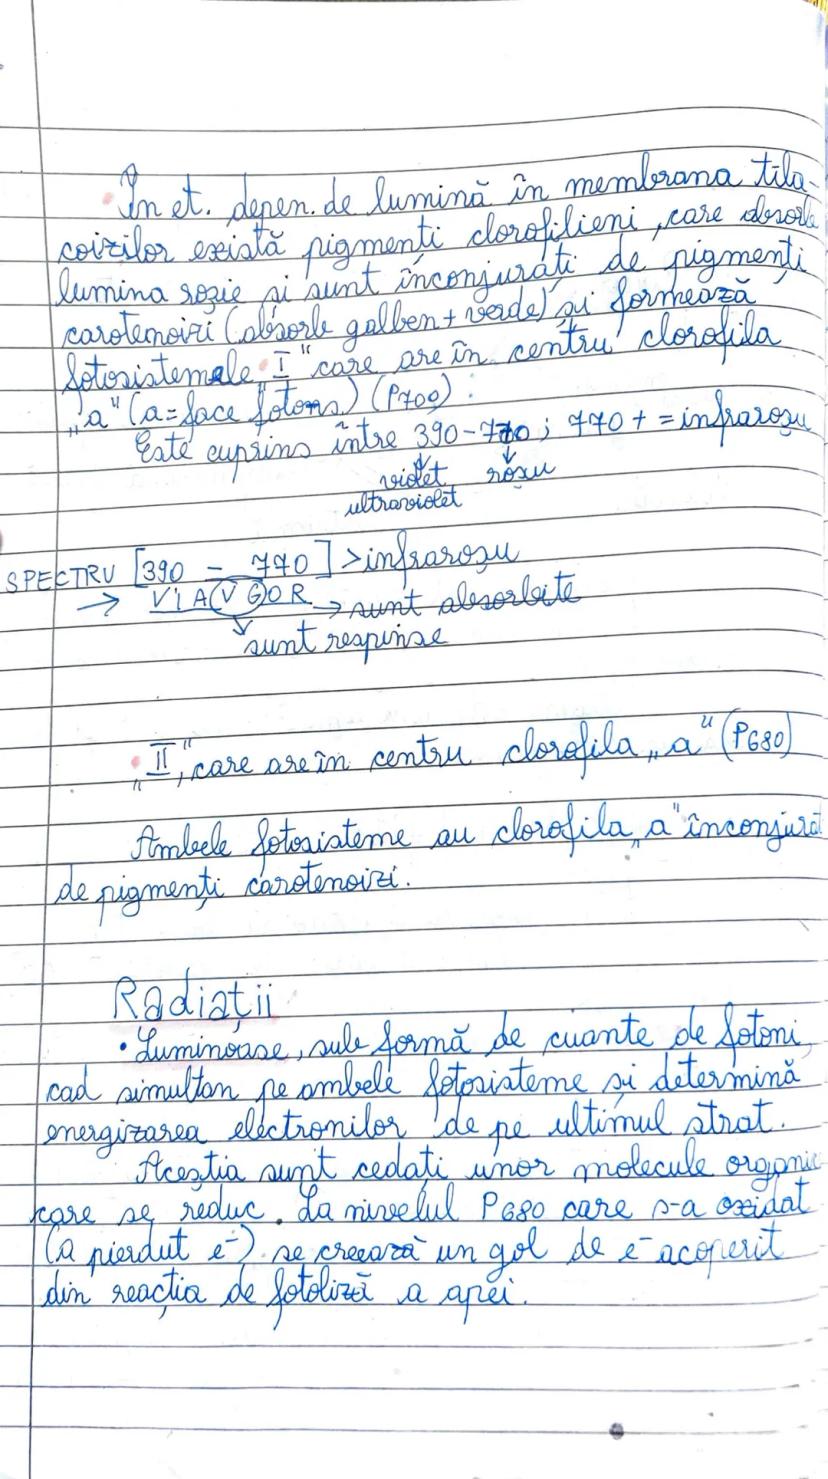 În et. depen. de lumină în membrana tila-
coizilor există pigmenți clorofilieni, care absorb
lumina roșie și sunt înconjurați de pigmenți
carotenoizi (absorb galben + verde) și formează
fotosistemele „I" care are în centru clorofila
„a" (a = face fotons) (P700).
Este cuprins între 390-770; 770 + = infraroșu
violet roșu
ultraviolet
SPECTRU [390 - 770] > infraroșu
→ V I A V G O R → sunt absorbite
sunt respinse
„II", care are în centru clorofila „a" (P680)
Ambele fotosisteme au clorofila „a" înconjurat
de pigmenți carotenoizi.
Radiații
• Luminoase, sub formă de cuante de fotoni,
cad simultan pe ambele fotosisteme și determină
energizarea electronilor de pe ultimul strat.
Aceștia sunt cedați unor molecule organic
care se reduc. La nivelul P680 care s-a oxidat
(a pierdut e⁻) se creează un gol de e⁻ acoperit
din reacția de fotoliză a apei.